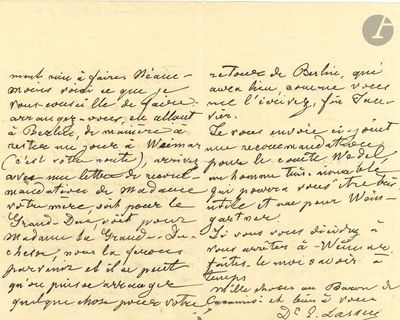 ment rien à faire. Néan-
moins voici ce que je
vous conseille de faire:
arrangez-vous, en allant
à Berlin, de manière à
rester un jour à Weimar
(c'est votre route), arrivez
avec une lettre de recom-
mandation de Madame
votre mère, soit pour le
Grand-Duc, soit pour
Madame la Grande-Du-
chesse, nous la ferons
parvenir et il se peut
qu'on puisse arranger
quelque chose pour votre
retour de Berlin, qui
aura lieu, comme vous
me l'écrivez, fin Jan-
vier.
Je vous envoie ci-joint
une recommandation
pour le comte Wedel,
un homme très-aimable,
qui pourra vous être très
utile et une pour Wein-
gartner.
Si vous vous décidez à
vous arrêter à Weimar
faites-le moi savoir à
temps
Mille choses au Baron de
et bien à vous
Dr E. Lassen
a